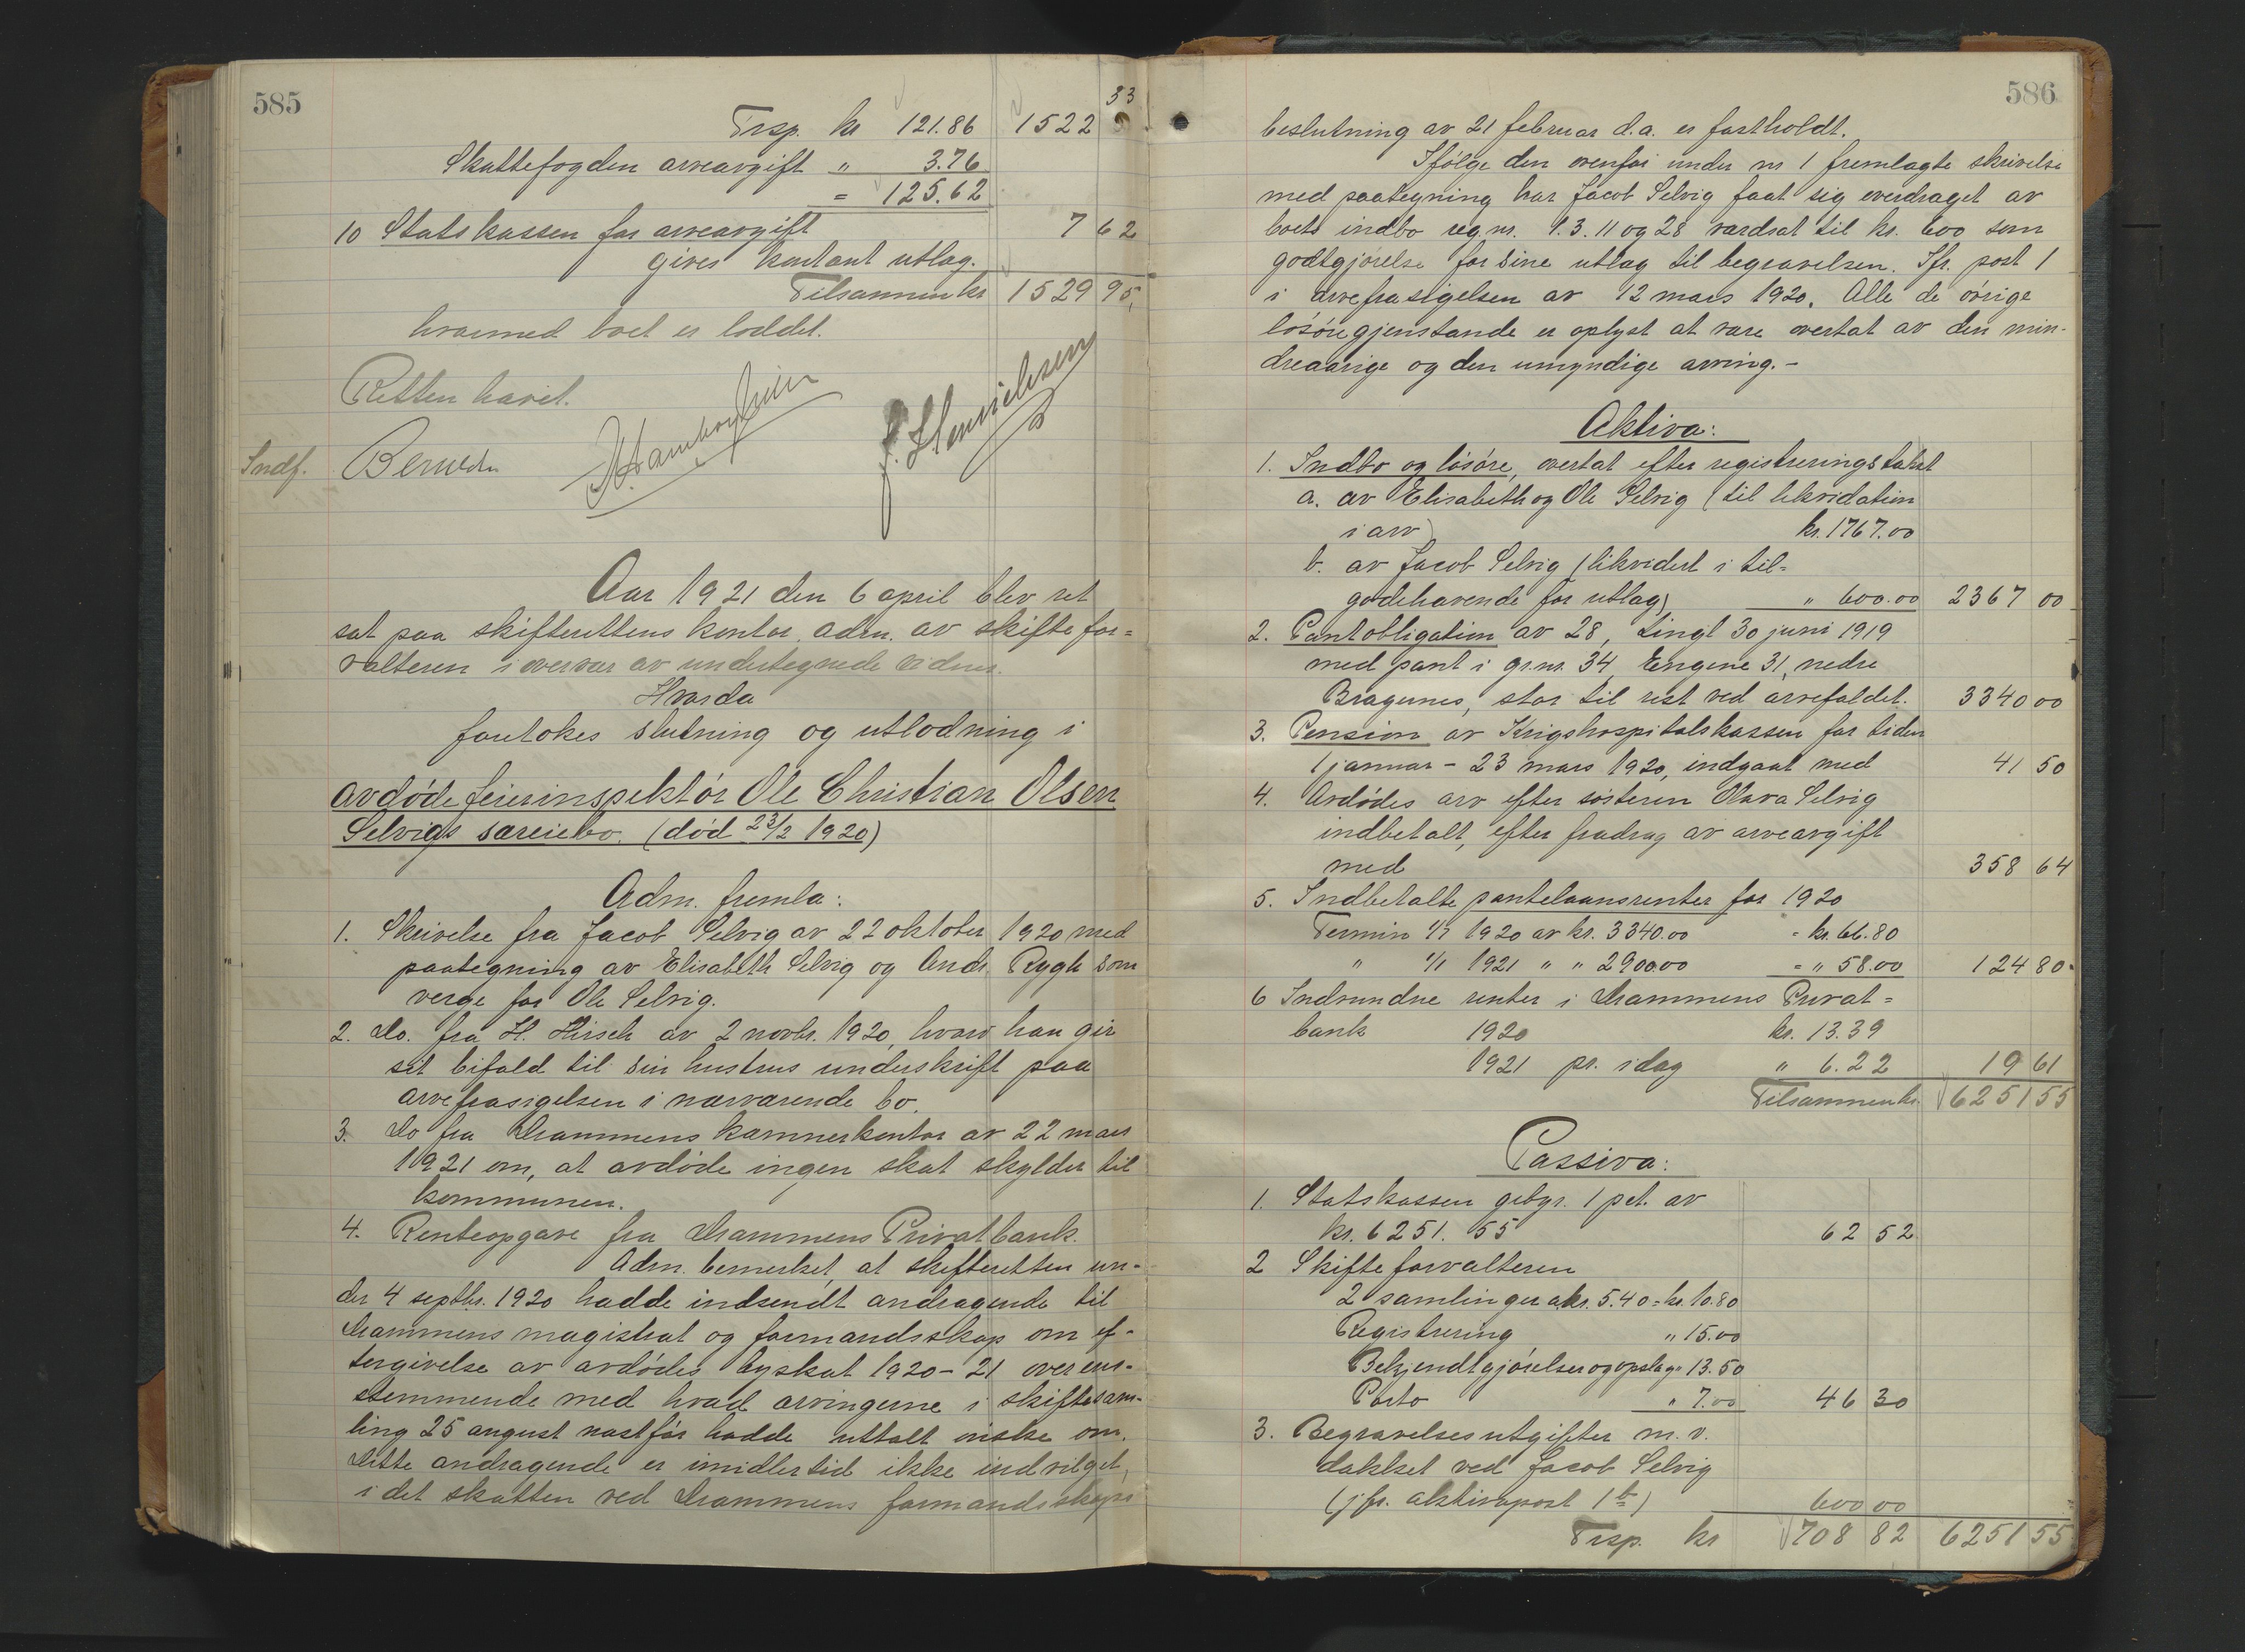 585
33
Trsp. kr 121.86 1522
Skattefogden arveavgift " 3.76
= 125.62
10 Statskassen for arveavgift 7 62
gives kontant utlag.
Tilsammen kr 1529 95
hvormed boet er loddet.
Retten hævet.
Indf.
Aar 1921 den 6 april blev ret
sat paa skifterettens kontor, adm. av skiftefor=
valteren i overvær av undertegnede vidner.
Hvorda
foretokes slutning og utlodning i
avdøde feierinspektør Ole Christian Olsen
Selvigs særeiebo. (død 23/2 1920)
Adm. fremla:
1. Skrivelse fra Jacob Selvig av 22 oktober 1920 med
paategning av Elisabeth Selvig og Andr. Rygh som
verge for Ole Selvig.
2. Do. fra H. Hirsch av 2 novbr. 1920, hvori han gir
sit bifald til sin hustrus underskrift paa
arvefrasigelsen i nærværende bo.
3. Do fra Drammens kæmnerkontor av 22 mars
1921 om, at avdøde ingen skat skylder til
kommunen.
4. Renteopgave fra Drammens Privatbank.
Adm. bemerket, at skifteretten un-
der 4 septbr. 1920 hadde indsendt andragende til
Drammens magistrat og formandsskap om ef-
tergivelse av avdødes byskat 1920-21 overens-
stemmende med hvad arvingerne i skiftesam-
ling 25 august næstfør hadde uttalt ønske om.
Dette andragende er imidlertid ikke indvilget,
idet skatten ved Drammens formandsskaps
586
beslutning av 21 februar d.a. er fastholdt.
Ifølge den ovenfor under nr 1 fremlagte skrivelse
med paategning har Jacob Selvig faat sig overdraget av
boets indbo reg.nr. 1.3.11 og 28 værdsat til kr. 600 som
godtgjørelse for sine utlæg til begravelsen. Jfr. post 1
i arvefrasigelsen av 12 mars 1920. Alle de øvrige
løsøregjenstande er oplyst at være overtat av den min-
dreaarige og den umyndige arving.-
Aktiva:
1. Indbo og løsøre, overtat efter registreringstakst
a. av Elisabeth og Ole Selvig (til likvidation
i arv) kr. 1767.00
b. av Jacob Selvig (likvidert i til=
godehavende for utlæg) " 600.00 2367 00
2. Pantobligation av 28, tingl 30 juni 1919
med pant i gr.nr. 34, Engene 31, nedre
Bragernes, stor til rest ved arvefaldet. 3340 00
3. Pension av Krigshospitalskassen for tiden
1 januar - 23 mars 1920, indgaat med 41 50
4. Avdødes arv efter søsteren Olava Selvig
indbetalt, efter fradrag av arveavgift
med 358 64
5. Indbetalte pantelaansrenter for 1920
Termin 1/7 1920 av kr. 3340.00 = kr. 66.80
" 1/1 1921 " " 2900.00 = " 58.00 124 80
6 Indvundne renter i Drammens Privat=
bank 1920 kr. 13.39
1921 pr. idag " 6.22 19 61
Tilsammen kr. 6251 55
Passiva:
1. Statskassen gebyr. 1 pct. av
kr. 6251.55 62 52
2 Skifteforvalteren
2 samlinger a kr. 5.40 = kr. 10.80
Registrering " 15.00
Bekjendtgjørelser og opslag " 13.50
Porto " 7.00 46 30
3. Begravelsesutgifter m.v.
dækket ved Jacob Selvig
(jfr. aktivapost 1 b) 600 00
Trsp. kr 708 82 6251 55